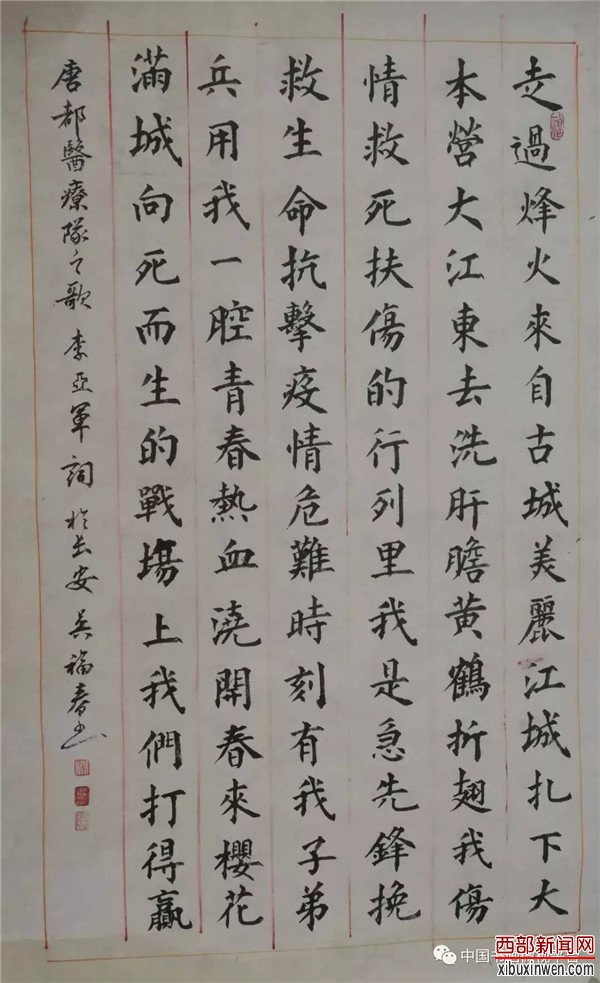 走過烽火來自古城美麗江城扎下大
本營大江東去洗肝膽黄鶴折翅我傷
情救死扶傷的行列里我是急先鋒挽
救生命抗擊疫情危難時刻有我子弟
兵用我一腔青春熱血澆開春來櫻花
滿城向死而生的戰場上我們打得贏
唐都醫療隊之歌 李亞軍詞 於長安 吳福春书
西部新闻网
xibuxinwen.com